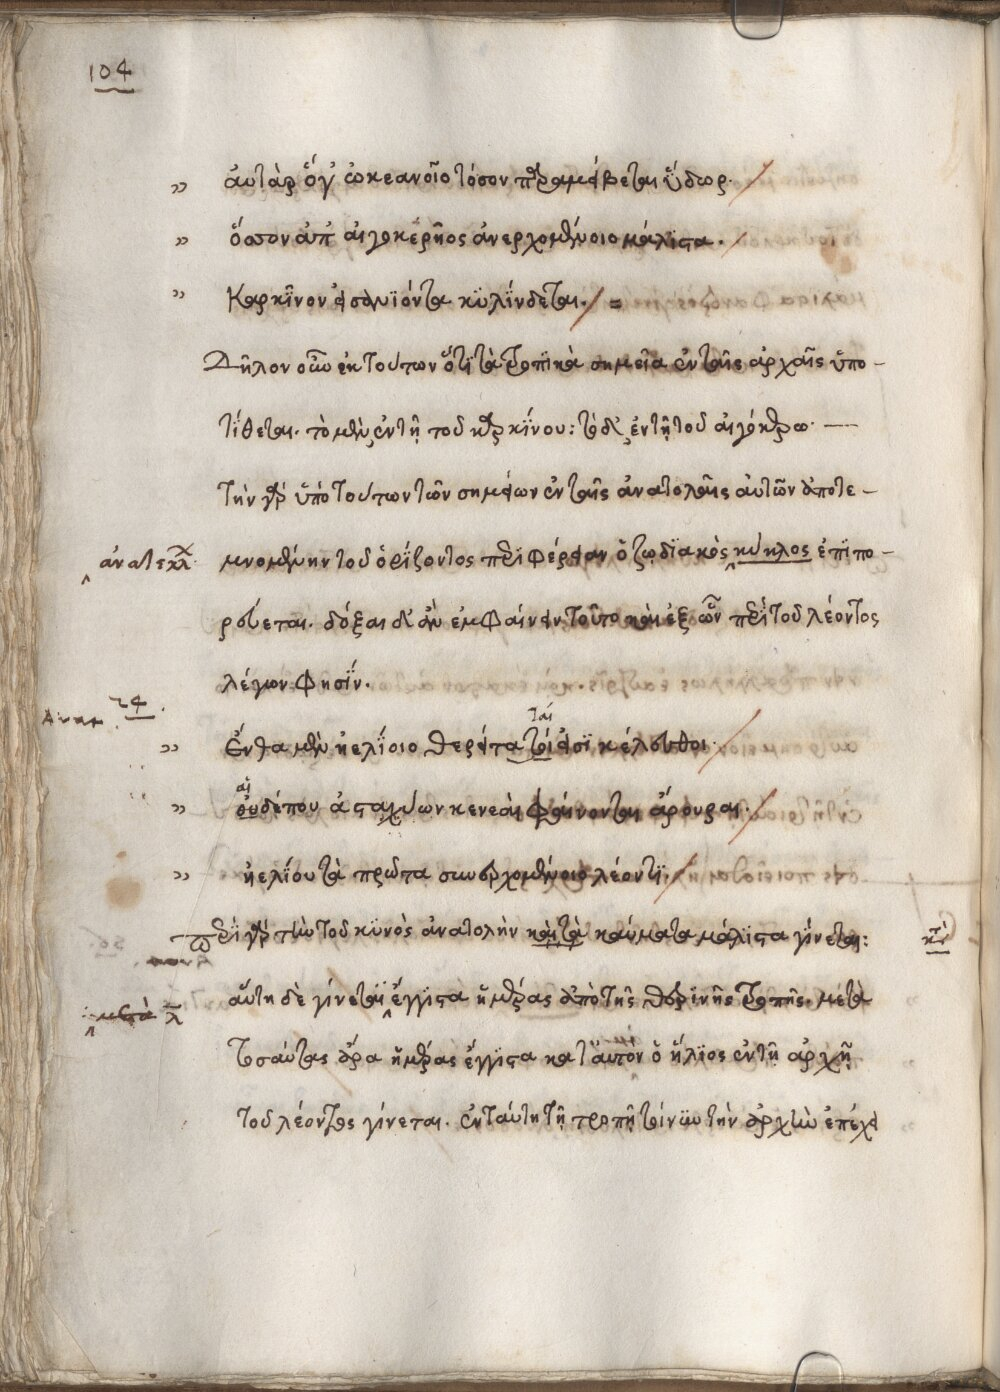 104
„ ἀυτὰρ ὅγ' ὠκεανοῖο τόσον παραμείβεται ὕδωρ.
„ ὅσσον ἀπ' αἰγοκερῆος ἀνερχομένοιο μάλιϊστα.
„ Καρκῖνον εἰσανϊόντα κϋλίνδεται. =
Δῆλον οὖν ἐκ τούτων ὅτϊ τὰ τροπϊκὰ σημεῖα ἐν ταῖς ἀρχαῖς ὑπο-
τΐθεται. τὸ μὲν, ἐν τῆ τοῦ καρκΐνου: τὸ δ', ἐν τῆ τοῦ αἰγόκερω.
τὴν γὰρ ὑπὸ τούτων τῶν σημείων ἐν ταῖς ἀνατολαῖς ἀυτῶν ἀποτε-
ἀνατέλλ
μνομένην τοῦ ὁρΐζοντος περϊφέρειαν ὁ ζωδϊακὸς κύκλος ἐπϊπο-
ρεύεται. δόξαι δ' ἂν ἐμφαίνειν τοῦτο καὶ ἐξ ὧν περΐ τοῦ λέοντος
λέγων φησΐν.
24
ταί
„ Ἔνθα μὲν ἠελΐοιο θερείταταί εἰσϊ κέλευθοι.
αἱ
„ οὐδέπου ἀσταχύων κενεαὶ φαίνονται ἄρουραι.
„ ἠελΐου τὰ πρῶτα συνερχομένοιο λέοντϊ.
περΐ γὰρ τὴν τοῦ κϋνὸς ἀνατολὴν καὶ τὰ καύματα μάλϊστα γΐνεται:
κτ
ἅυτη δὲ γίνεται ἔγγϊστα ἡμέρας ἀπὸ τῆς θερϊνῆς τροπῆς. μετὰ
μετὰ λ
τοσαύτας ἄρα ἡμέρας ἔγγϊστα κατ' ἀυτόν ὁ ἥλϊος ἐν τῆ ἀρχῆ
τοῦ λέοντος γίνεται. ἐν ταύτη τῆ τροπῆ τοίνϋν τὴν ἀρχὴν ἐπέχει